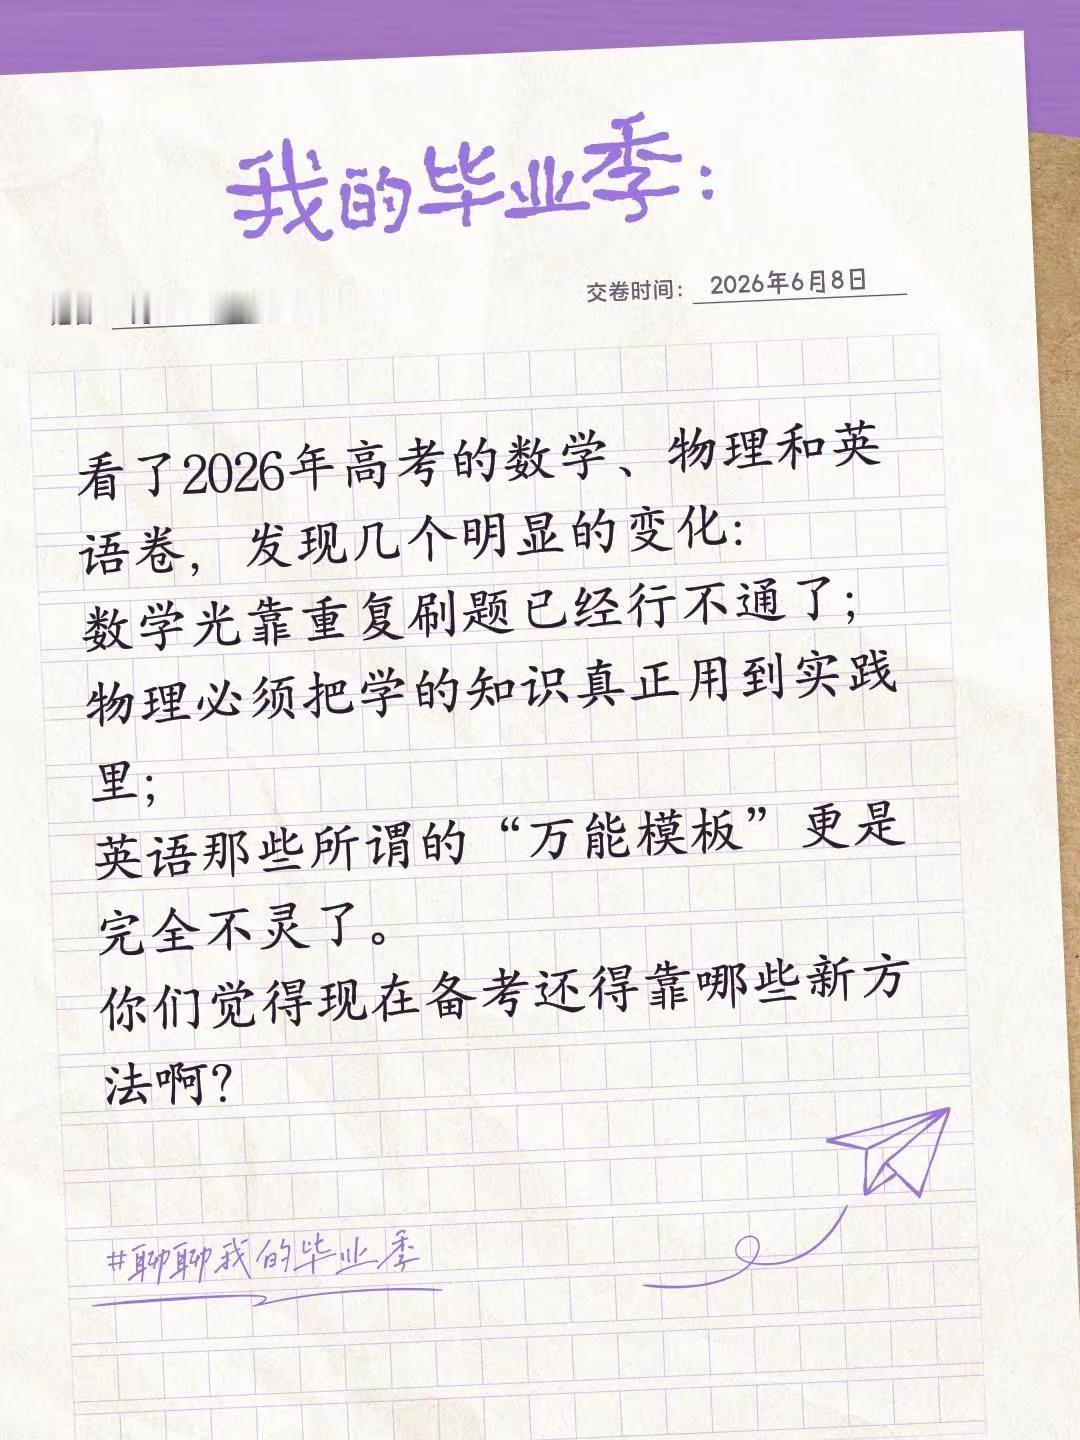 我的毕业季：
交卷时间： 2026年6月8日
看了2026年高考的数学、物理和英
语卷，发现几个明显的变化：
数学光靠重复刷题已经行不通了；
物理必须把学的知识真正用到实践
里；
英语那些所谓的“万能模板”更是
完全不灵了。
你们觉得现在备考还得靠哪些新方
法啊？
#聊聊我的毕业季